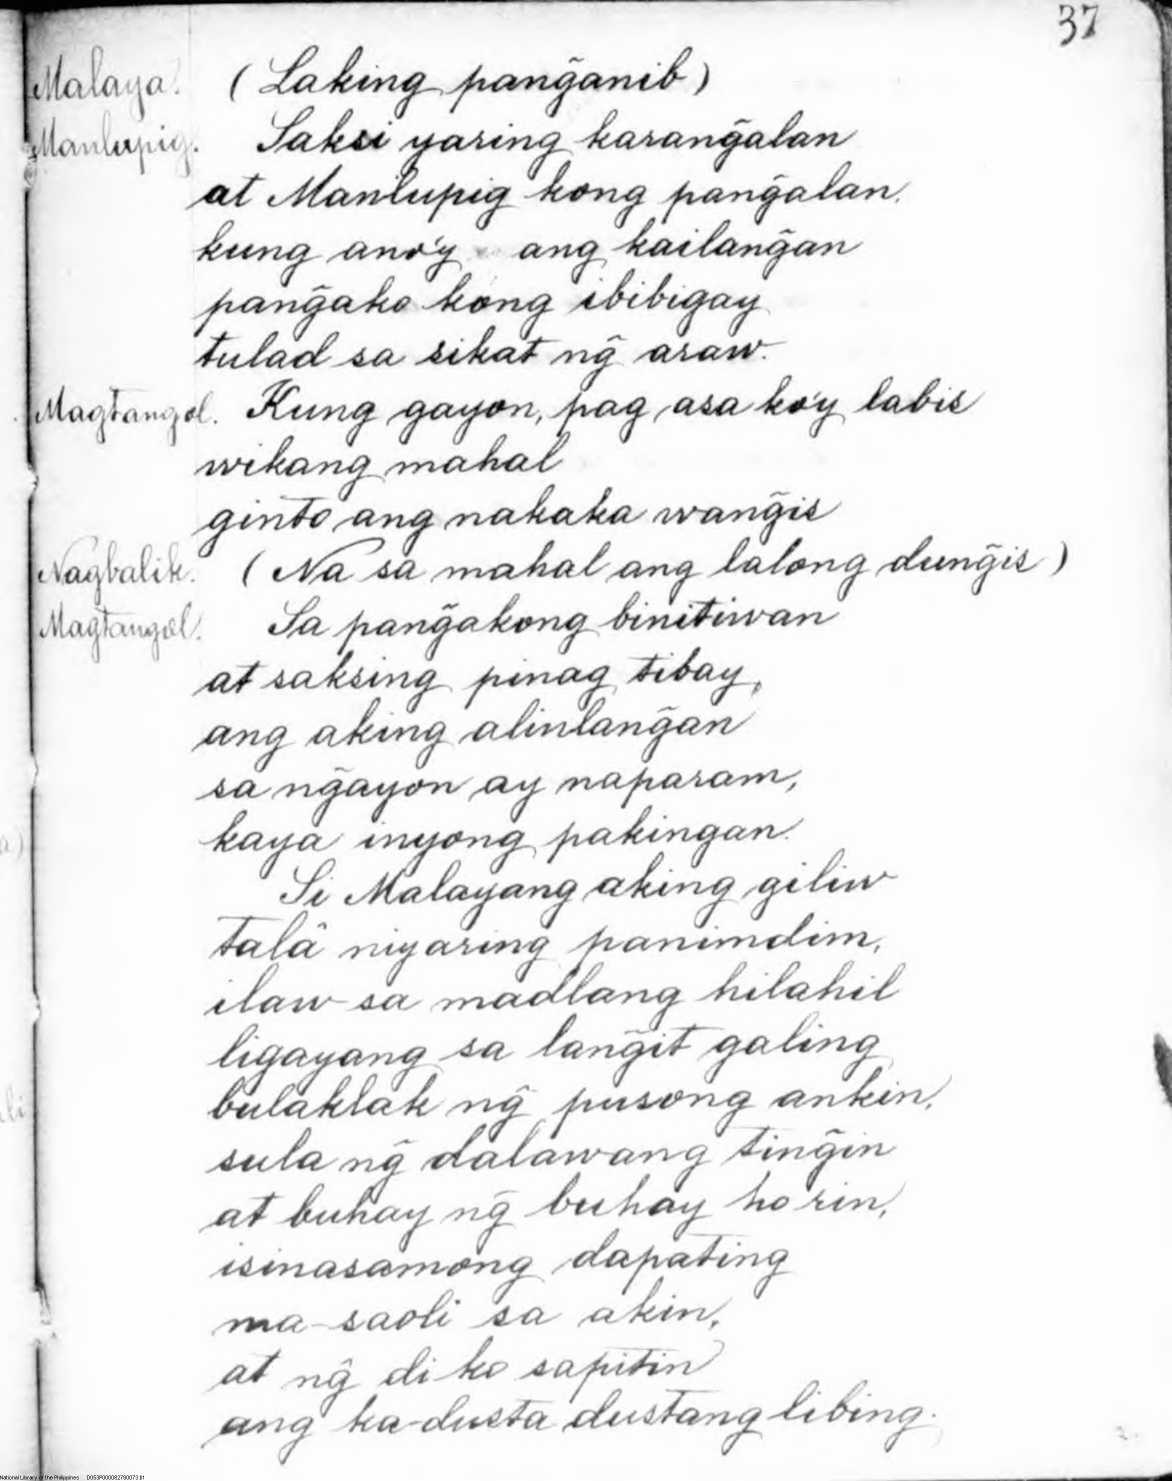 37
Malaya. (Laking pang̃anib)
Manlupig. Saksi yaring karang̃alan
at Manlupig kong pang̃alan.
kung ano'y ang kailang̃an
pang̃ako kong ibibigay
tulad sa sikat ng̃ araw.
Magtangol. Kung gayon, pag asa ko'y labis
wikang mahal
ginto ang nakaka wang̃is
Nagbalik. (Na sa mahal ang lalong dung̃is)
Magtangol. Sa pang̃akong binitiwan
at saksing pinag tibay,
ang aking alinlang̃an
sa ng̃ayon ay naparam,
kaya inyong pakingan.
Si Malayang aking giliw
talâ niyaring panimdim,
ilaw sa madlang hilahil
ligayang sa lang̃it galing
bulaklak ng̃ pusong ankin,
sula ng̃ dalawang ting̃in
at buhay ng̃ buhay ko rin,
isinasamong dapating
ma-saoli sa akin,
at ng̃ di ko sapitin
ang ka-dusta dustang libing.
National Library of the Philippines D053P000082790073.tif